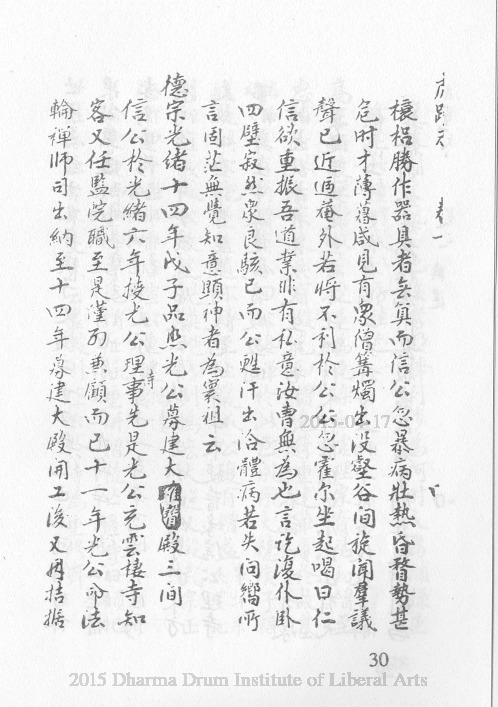 虎跑志 卷一
榱梠勝作器具者無筭而信公忽暴病壯熱昏瞀勢甚
危时才薄暮咸見有眾僧篝燭出没壑谷间旋闻羣議
聲已近逼菴外若將不利於公公忽霍尔坐起喝曰仁
信欲重振吾道業非有私意汝曹無為也言訖復仆卧
四壁寂然眾良駭已而公甦汗出洽體病若失问嚮所
言固茫無覺知意顕神者為窠祖云
德宗光緒十四年戊子品照光公募建大寶殿三间
信公於光緒六年授光公理寺事先是光公充雲棲寺知
客又任監院職至是謹列兼顧而已十一年光公命法
輪禅师司出納至十四年募建大殿闲工後又拮据
30
2015-04-17
2015 Dharma Drum Institute of Liberal Arts